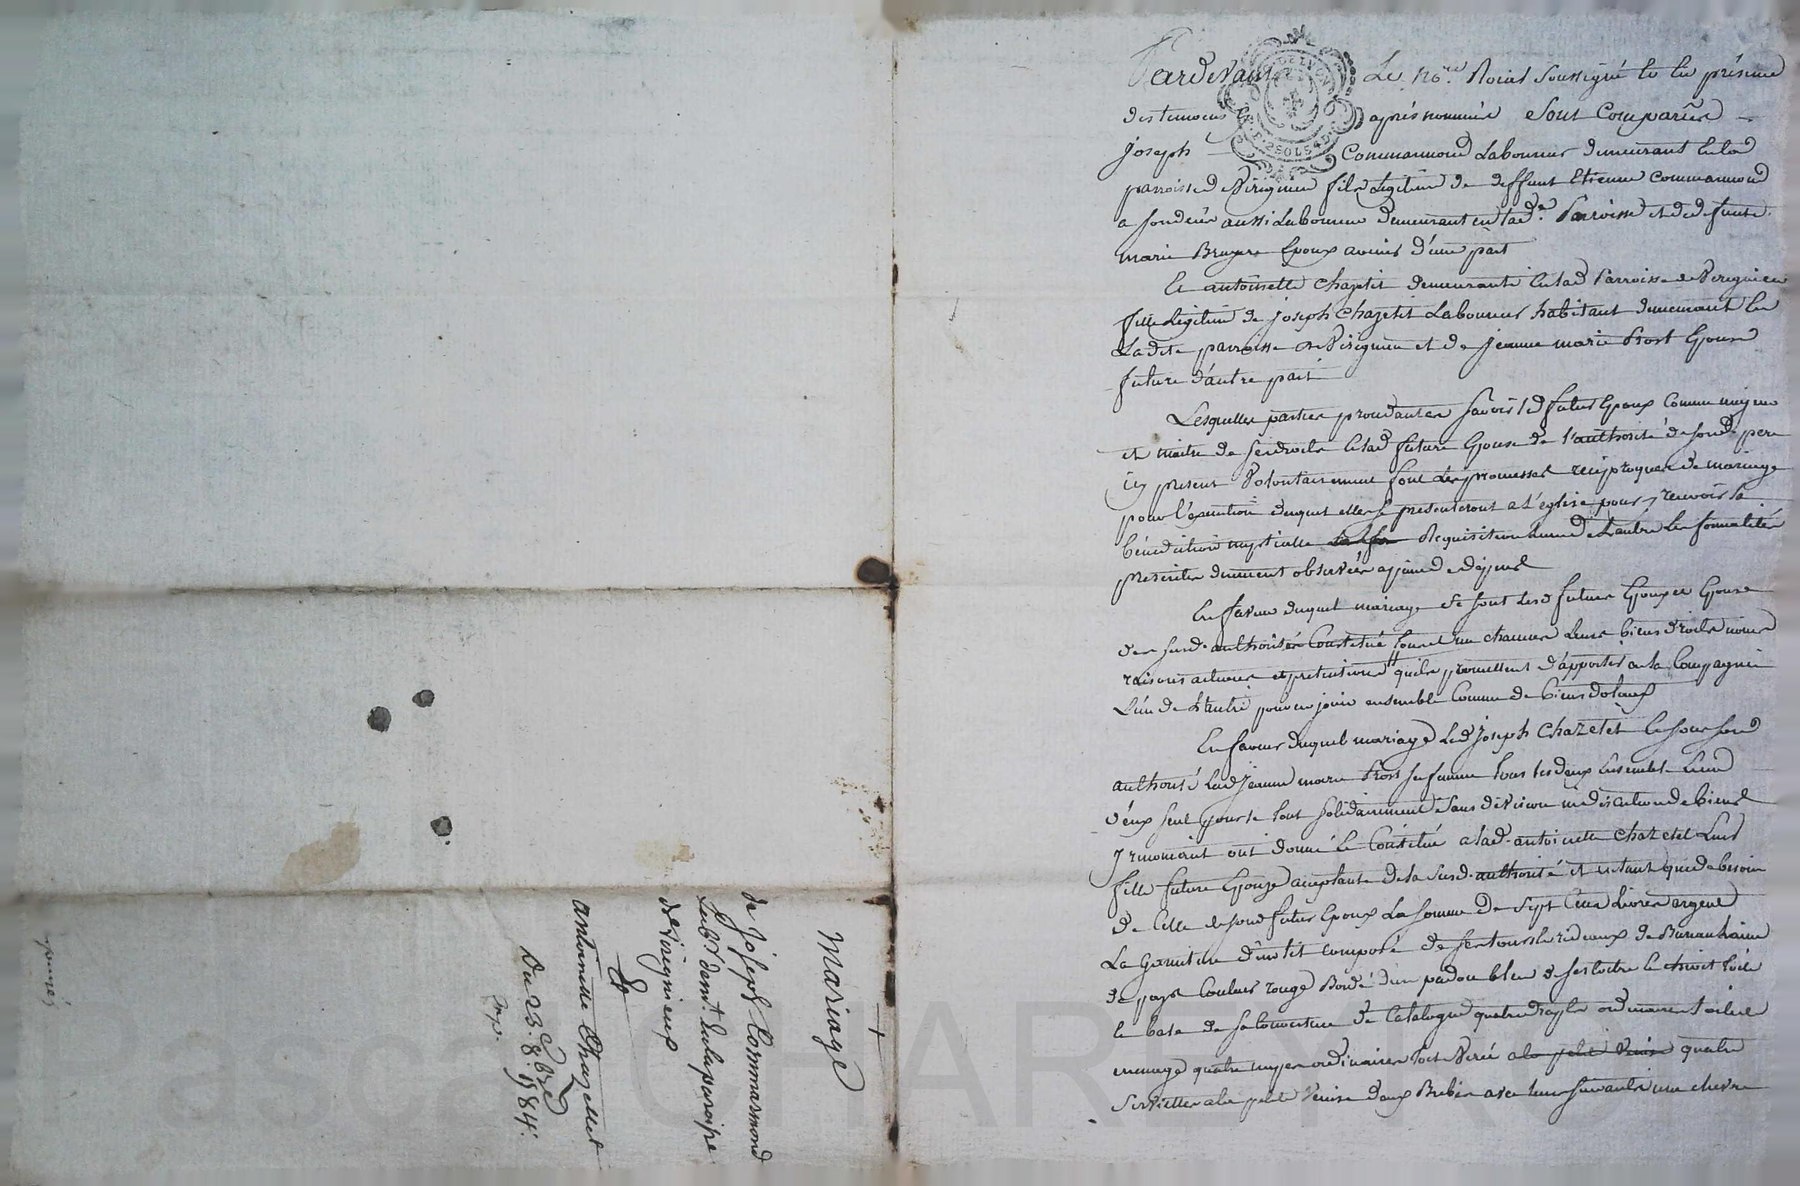 Pardevant Le No.re Roial Soussigné et en présence
des temoins cy après nommés Sont Comparus
Joseph Commarmond Laboureur demeurant en la
parroisse de Virignieu fils Légitime de deffunt Etienne Commarmond
aussi Laboureur demeurant en lad.e Parroisse et de defunte
marie Bruyere Epoux avenir d'une part
Et antoinette Chazetit demeurante en lad Parroisse de Virignieu
fille Légitime de joseph Chazetit Laboureur habitant demeurant en
Ladite parroisse de Virignieu et de jeanne marie Prost Epouse
future d'autre part
Lesquelles parties procedantes Savoir led futur Epoux comme majeur
et maitre de ses droits et lad future Epouse de l'authorité de sond pere
icy present Volontairement font les promesses reciproques de mariage
pour l'execution duquel elles se presenteront a l'eglise pour y recevoir la
bénédiction nuptialle Requisition l'une de L'autre les formalités
prescrites duement observées a peine de dépens
En faveur duquel mariage se sont lesd futurs Epoux et Epouse
de susd. authorités Constitué tous et un chacuns leurs biens droits noms
raisons actions et pretentions qu'ils promettent d'apporter en la Compagnie
L'un de L'autre pour en jouir ensemble Comme de biens dotaux
En faveur duquel mariage Led Joseph Chazetet et sous son
authorité Lad Jeanne marie Prost sa femme tous les deux Ensemble L'un
d'eux seul pour le tout solidairement sans division ni discution de biens
y renoncant ont donné et Constitué a lad. antoinette Chazetet Leur
fille future Epouze acceptante de la susd. authorité et en tant que de besoin
de Celle de sond futur Epoux La somme de Sept Cent Livres argent
La garniture d'un lit composé de ses tours de rideaux de
de pays Couleur rouge Bordé d'un padou bleu de son Ciel toile
le base de sa Couverture de Catalogne quatre draps ordinaires toile de
menage quatre nappes ordinaires quatre
Serviettes a la petite Venise deux Brebis avec leurs suivants une chevre
+
Mariage
de Joseph Commarmond
Lab.r dem.t en la paroisse
de Virignieux
&
antoinette Chazettet
Du 23. 8bre 1784.
Exp.